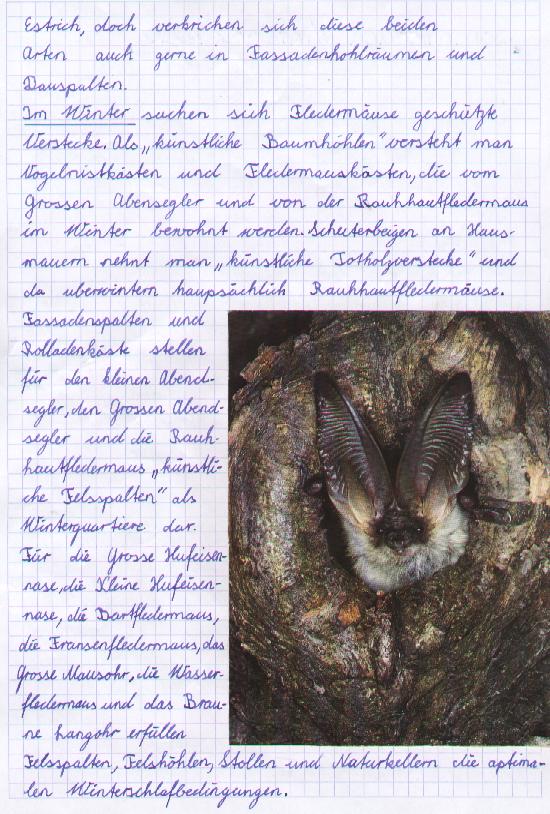 Estrich, doch verkrichen sich diese beiden
Arten auch gerne in Fassadenhohlräumen und
Dauspalten.
Im Winter suchen sich Fledermäuse geschützte
Verstecke. Als „künstliche Baumhöhlen" versteht man
Vogelnistkästen und Fledermauskästen, die vom
Grossen Abensegler und von der Rauhhautfledermaus
im Winter bewohnt werden. Scheiterbeigen an Haus-
mauern nehnt man „künstliche Totholzverstecke" und
da uberwintern haupsächlich Rauhhautfledermäuse.
Fassadenspalten und
Rolladenkäste stellen
für den kleinen Abend-
segler, den Grossen Abend-
segler und die Rauh-
hautfledermaus „künstli-
che Felsspalten" als
Winterquartiere dar.
Für die Grosse Hufeisen-
nase, die Kleine Hufeisen-
nase, die Bartfledermaus,
die Fransenfledermaus, das
Grosse Mausohr, die Wasser-
fledermaus und das Brau-
ne Langohr erfüllen
Felsspalten, Felshöhlen, Stollen und Naturkellern die optima-
len Winterschlafbedingungen.